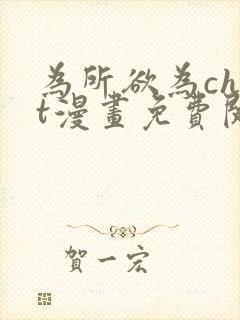 為所欲為ch
t漫畫免費閱
賀一宏